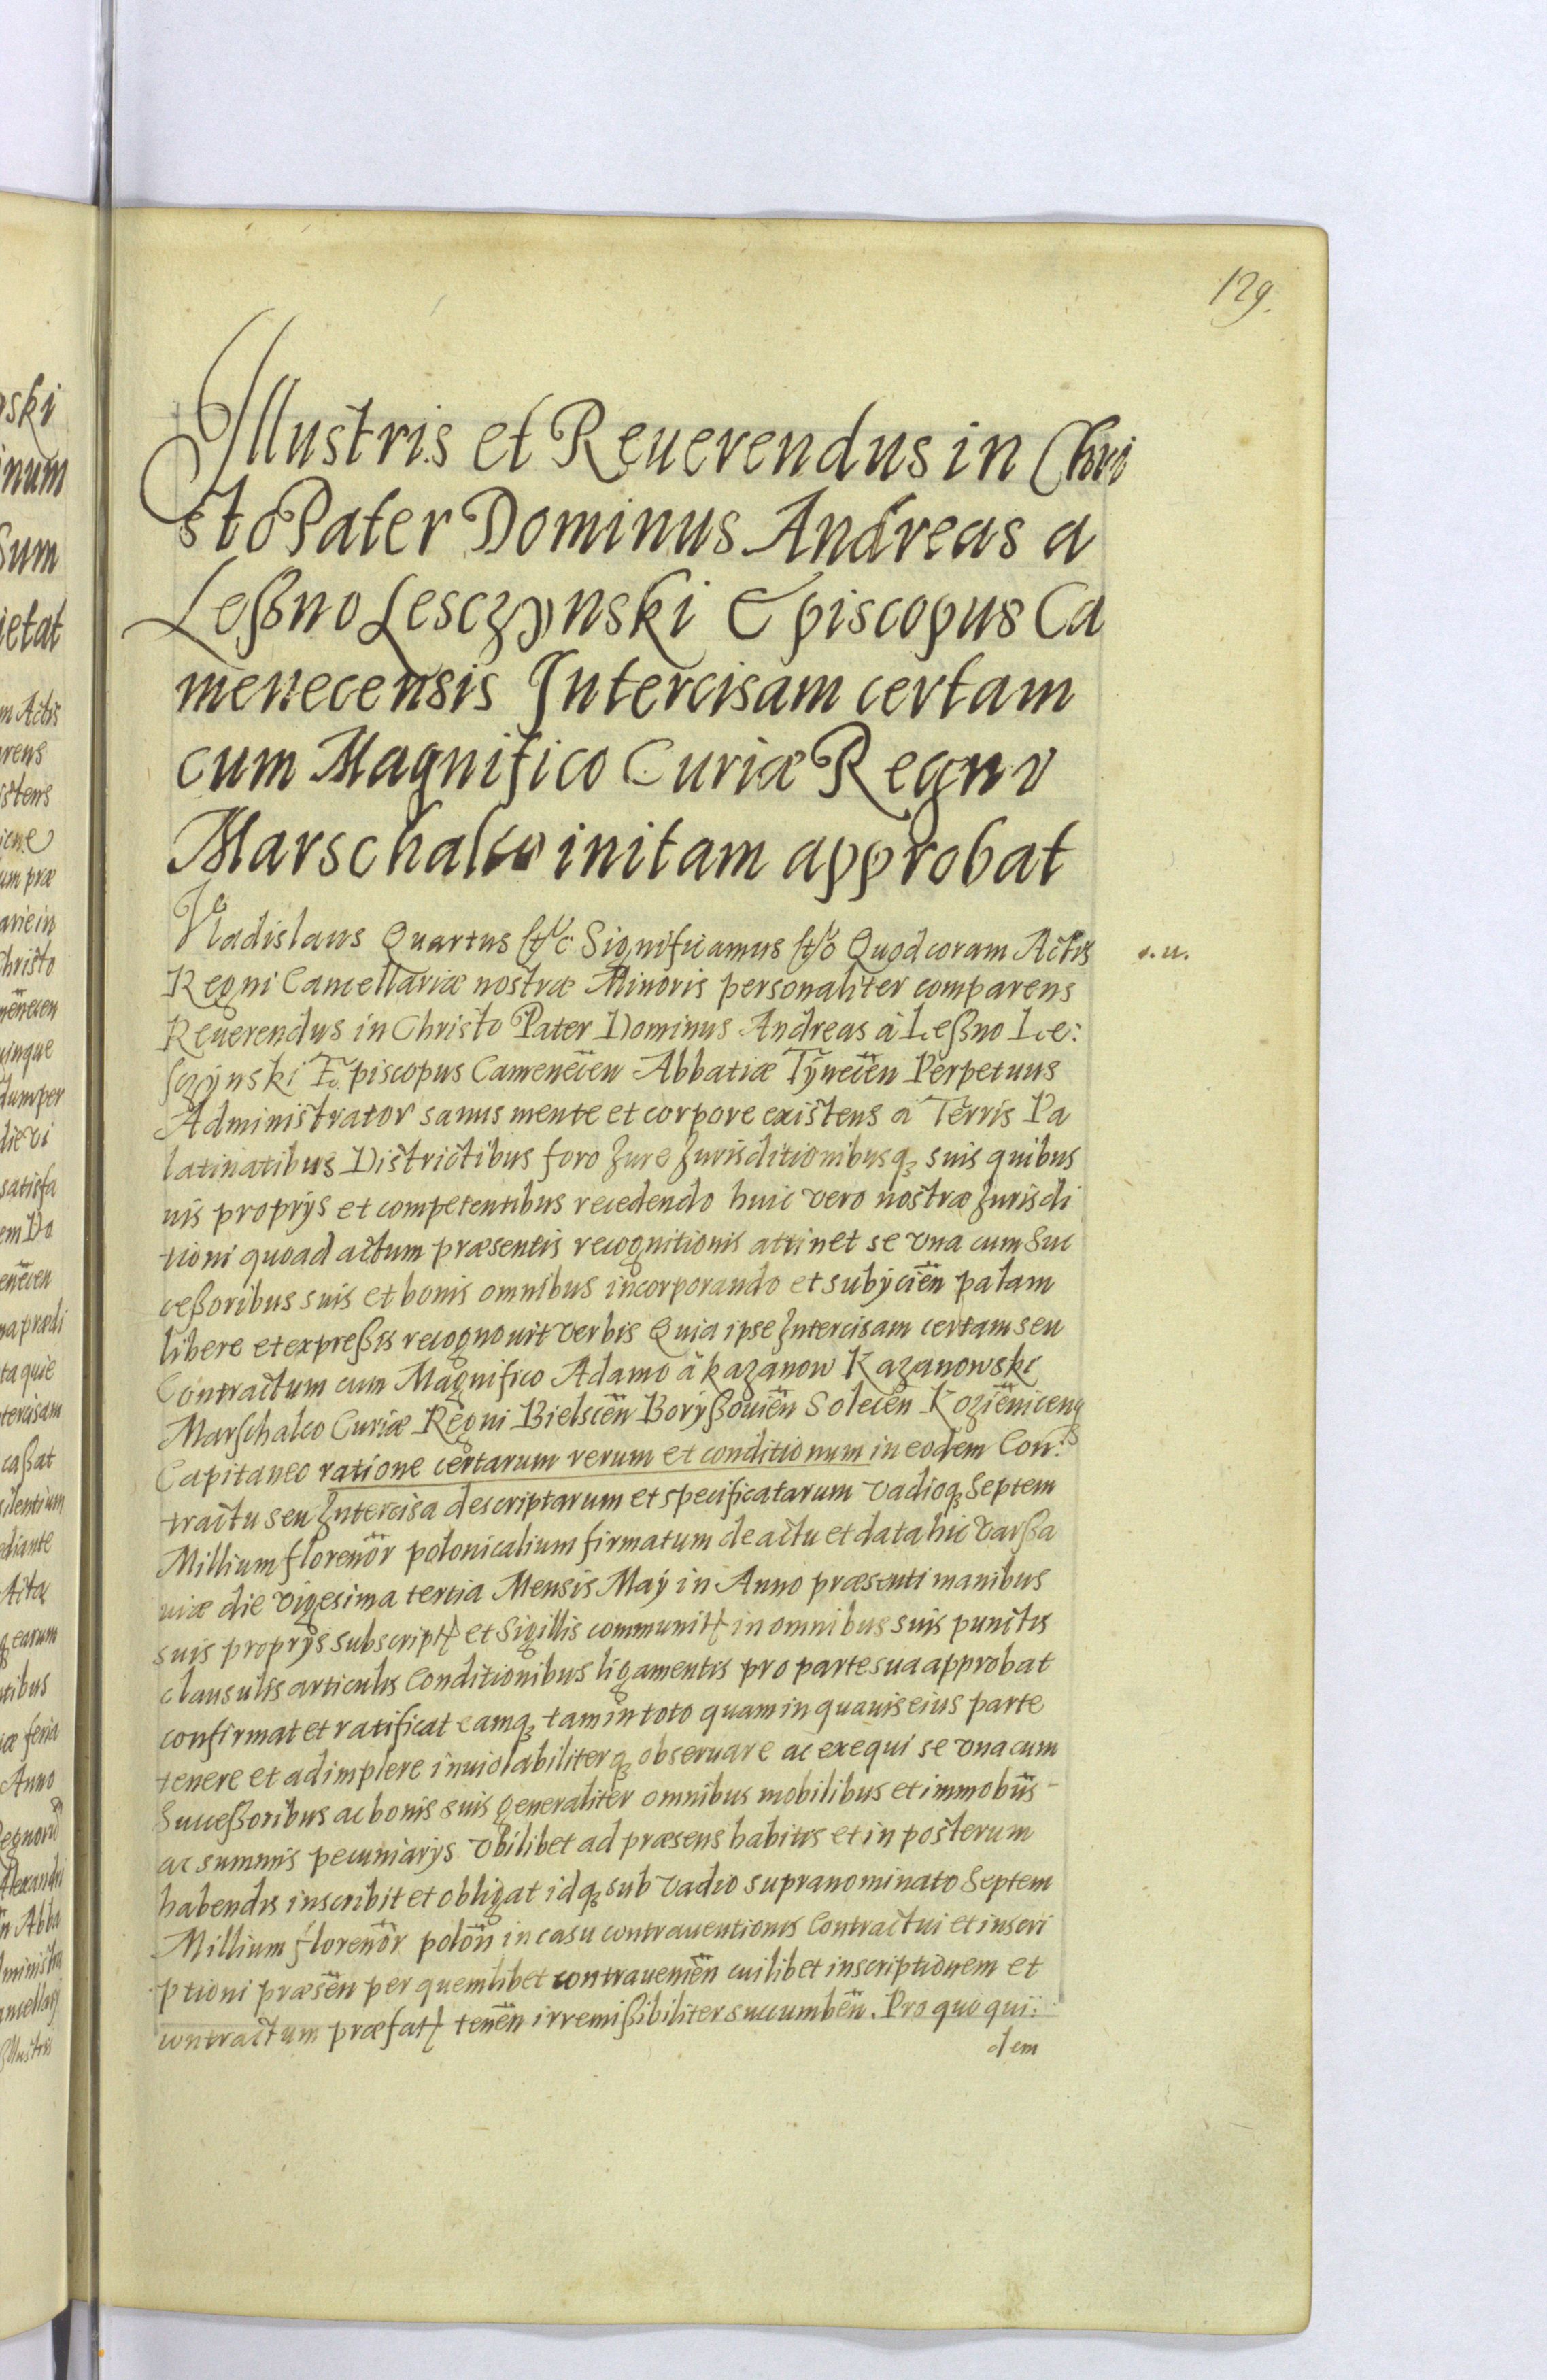 129.
Illustris et Reuerendus in Chri
sto Pater Dominus Andreas a
Leßno Lesczynski Episcopus Ca
menecensis Intercisam certam
cum Magnifico Curiæ Regni
Marschalco initam approbat
Vladislaus Quartus &c Significamus &c Quod coram Actis
Regni Cancellariæ nostræ Minoris personaliter comparens
Reuerendus in Christo Pater Dominus Andreas à Leßno Le:
sczÿnski Episcopus Camenecen̄ Abbatiæ Tÿnecen̄ Perpetuus
Administrator sanus mente et corpore existens a Terris Pa
latinatibus Districtibus foro Jure Jurisditionibusq; suis quibus
uis proprÿs et competentibus recedendo huic vero nostræ Jurisdi
tioni quoad actum præsentis recognitionis attinet se vna cum Suc
ceßoribus suis et bonis omnibus incorporando et subÿcien̄ palam
libere et expreßis recognouit verbis Quia ipse Intercisam certam seu
Contractum cum Magnifico Adamo à Kazanow Kazanowski
Marschalco Curiæ Regni Bielscen̄ Borÿßouien̄ Solecen̄ Kozienicenq
Capitaneo ratione certarum rerum et conditionum in eodem Con:
tractu seu Intercisa descriptarum et specificatarum vadioq; Septem
Millium florenor̄ polonicalium firmatum de actu et data hic Varßa
uiæ die vigesima tertia Mensis Maÿ in Anno præsenti manibus
suis proprÿs subscript et Sigillis communit in omnibus suis punctis
clausulis articulis Conditionibus ligamentis pro parte sua approbat
confirmat et ratificat eamq; tam in toto quam in quauis eius parte
tenere et adimplere inuiolabiliterq; obseruare ac exequi se vna cum
Succeßoribus ac bonis suis generaliter omnibus mobilibus et immob̄us
ac summis pecuniarÿs vbilibet ad præsens habitis et in posterum
habendis inscribit et obligat idq; sub vadio supranominato Septem
Millium florenor̄ polon̄ in casu contrauentionis Contractui et inscri
ptioni præsen̄ per quemlibet contrauenien̄ cuilibet inscriptionem et
contractum præfat tenen̄ irremißibiliter succumben̄. Pro quo qui:
dem